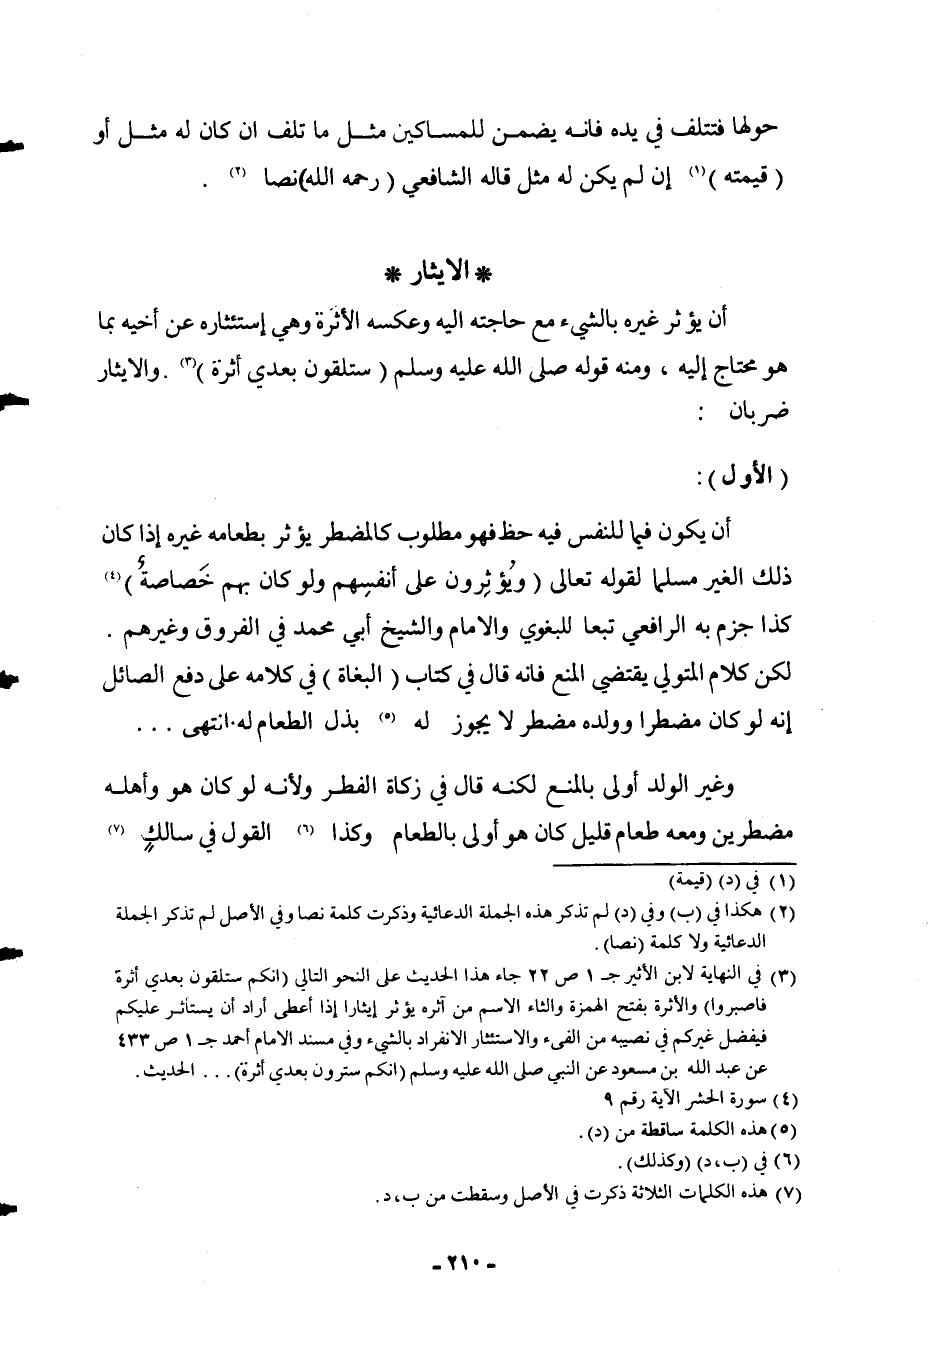 حولها فتتلف في يده فانه يضمن للمساكين مثل ما تلف ان كان له مثل أو
( قيمته )(١) إن لم يكن له مثل قاله الشافعي ( رحمه الله)نصا (٢) .
* الايثار *
أن يؤثر غيره بالشيء مع حاجته اليه وعكسه الأثَرة وهي إستئثاره عن أخيه بما
هو محتاج إليه ، ومنه قوله صلى الله عليه وسلم ( ستلقون بعدي أثرة )(٣) .والايثار
ضربان :
( الأول ) :
أن يكون فيما للنفس فيه حظ فهو مطلوب كالمضطر يؤثر بطعامه غيره إذا كان
ذلك الغير مسلما لقوله تعالى ( ويُؤثِرون على أنفسِهم ولو كان بهم خَصاصةٌ )(٤)
كذا جزم به الرافعي تبعا للبغوي والامام والشيخ أبي محمد في الفروق وغيرهم .
لكن كلام المتولي يقتضي المنع فانه قال في كتاب ( البغاة ) في كلامه على دفع الصائل
إنه لو كان مضطرا وولده مضطر لا يجوز له (٥) بذل الطعام له.انتهى . . .
وغير الولد أولى بالمنع لكنه قال في زكاة الفطر ولأنه لو كان هو وأهله
مضطرين ومعه طعام قليل كان هو أولى بالطعام وكذا (٦) القول في سالكٍ (٧)
(١) في (د) (قيمة)
(٢) هكذا في (ب) وفي (د) لم تذكر هذه الجملة الدعائية وذكرت كلمة نصا وفي الأصل لم تذكر الجملة
الدعائية ولا كلمة (نصا) .
(٣) في النهاية لابن الأثير جـ ١ ص ٢٢ جاء هذا الحديث على النحو التالي (انكم ستلقون بعدي أثرة
فاصبروا) والأثرة بفتح الهمزة والثاء الاسم من آثره يؤثر إيثارا إذا أعطى أراد أن يستأثر عليكم
فيفضل غيركم في نصيبه من الفيء والاستئثار الانفراد بالشيء وفي مسند الامام أحمد جـ ١ ص ٤٣٣
عن عبد الله بن مسعود عن النبي صلى الله عليه وسلم (انكم سترون بعدي أثرة) . . . الحديث .
(٤) سورة الحشر الآية رقم ٩
(٥) هذه الكلمة ساقطة من (د) .
(٦) في (ب،د) (وكذلك) .
(٧) هذه الكلمات الثلاثة ذكرت في الأصل وسقطت من ب،د .
- ٢١٠ -